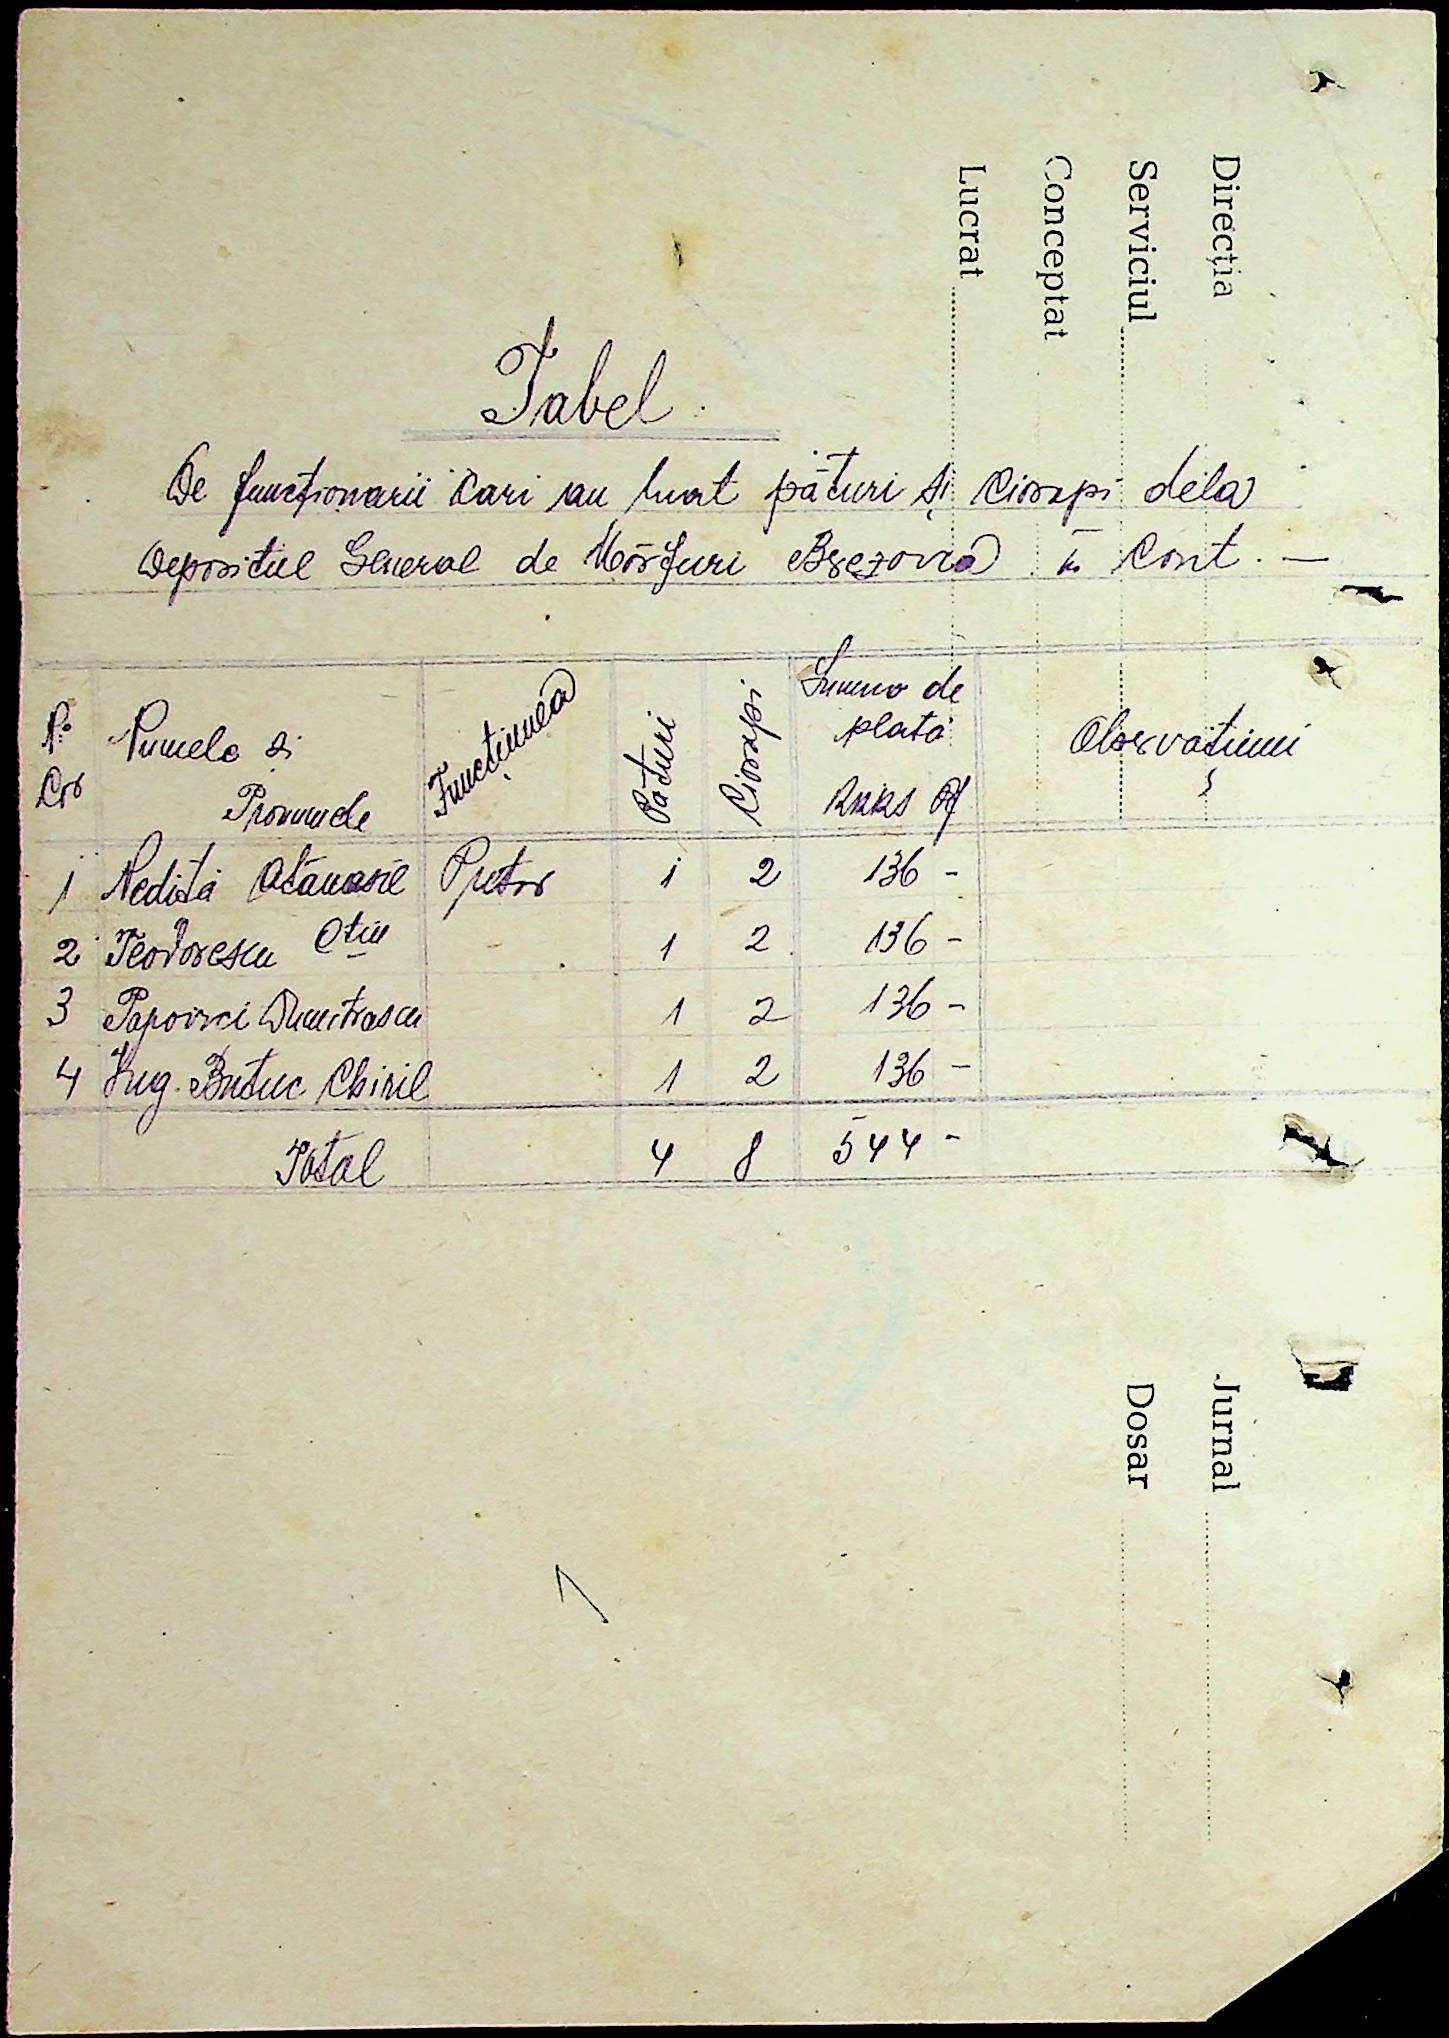 Direcția
Serviciul
Conceptat
Lucrat
Tabel
De funcționarii cari au luat pături și Ciorapi dela
Depozitul General de Mărfuri Brezovca în Cont. —
No Crt Numele și Pronumele Funcțiunea Pături Ciorapi Suma de plată RKKS Pf Observațiuni
1 Nedița Atanasie Pretor 1 2 136 -
2 Teodorescu Ctin 1 2 136 -
3 Popovici Dumitrascu 1 2 136 -
4 Ing. Butuc Chiril 1 2 136 -
Total 4 8 544 -
Jurnal
Dosar